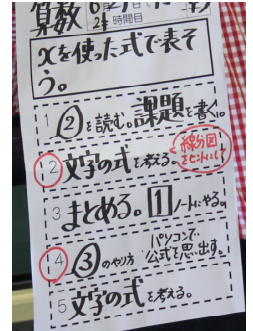 算数
時間目
xを使った式で表そ
う。
1 ②を読む。課題を書く。
2 文字の式を考える。
線分図
をヒントにして
3 まとめる。1 ノートにやる。
4 ③のやり方 パソコンで
公式を思い出す。
5 文字の式を考える。